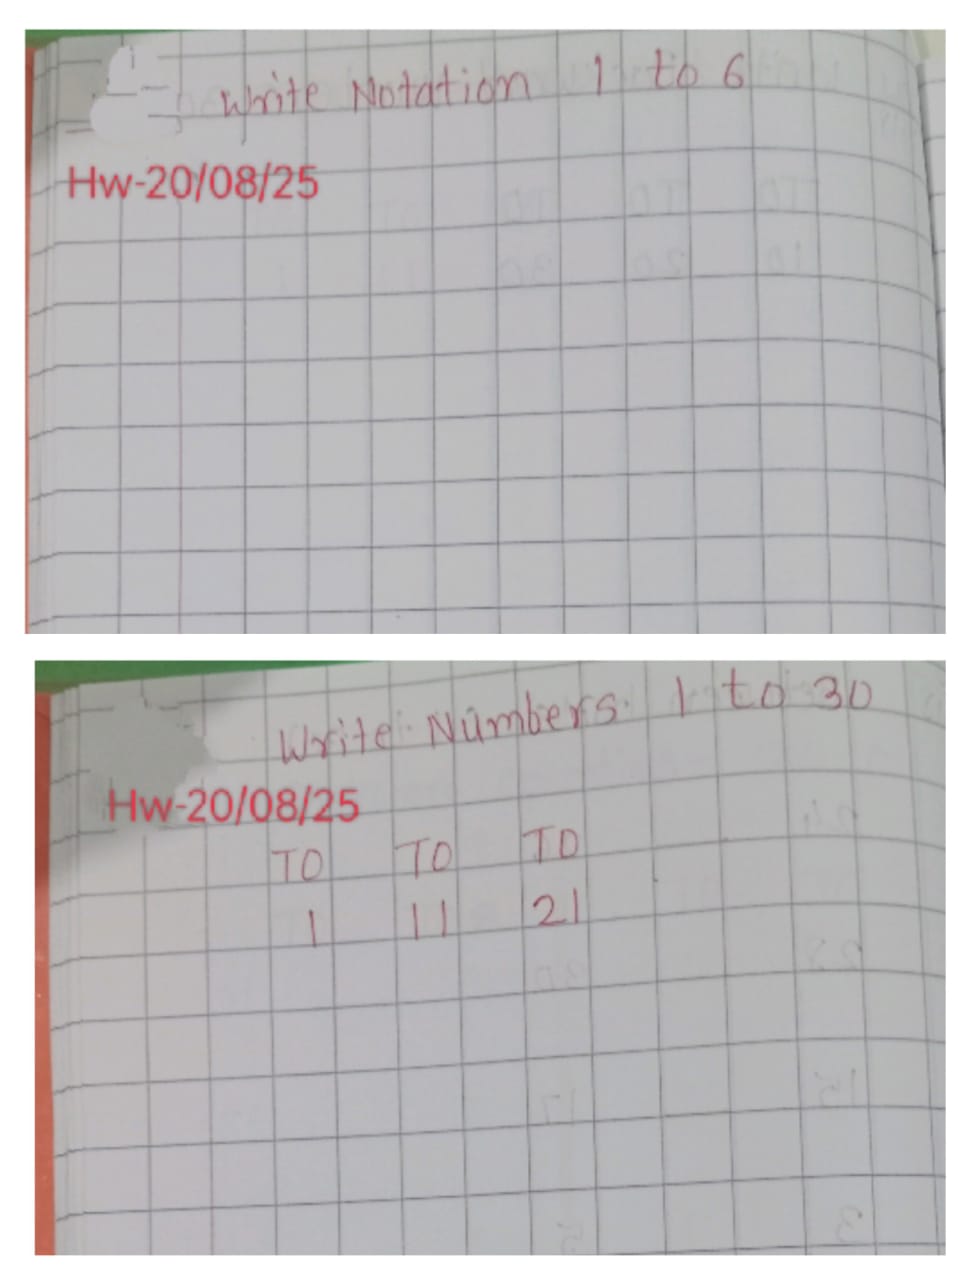 Write Notation 1 to 6
Hw-20/08/25
Write Numbers 1 to 30
Hw-20/08/25
TO TO TO
1 11 21